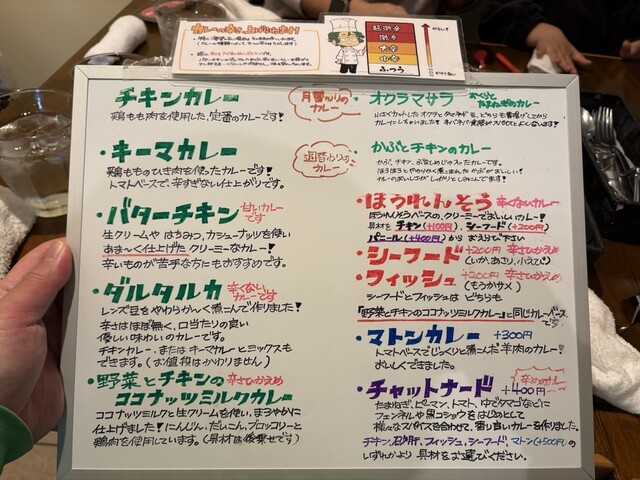 カレーの辛さ、上げれます!
超激辛
激辛
大辛
中辛
ふつう
辛い!
辛くない
・チキンカレー
鶏もも肉を使用した、定番のカレーです!
・キーマカレー
鶏もものひき肉を使用したカレーです!
トマトベースで、辛すぎない仕上がりです。
・バターチキン 甘いカレーです
生クリームやはちみつ、カシューナッツを使い
あま〜く仕上げたクリーミーなカレー!
辛いものが苦手な方にもおすすめです。
・ダルタルカ 辛くないカレーです
レンズ豆をやわらかく煮こんで作りました!
辛さはほぼ無く、口当たりの良い
優しい味わいのカレーです。
チキンカレー、または キーマカレーとミックスも
できます。(お値段はかわりません)
・野菜とチキンの 辛さひかえめ
ココナッツミルクカレー
ココナッツミルクと生クリームを使い、まろやかに
仕上げました!にんじん、だいこん、ブロッコリーと
鶏肉を使用しています。(具材は後乗せです)
月替わりのカレー
・オクラマサラ おくらとたまねぎのカレー
週替わりのカレー
・かぶとチキンのカレー
かぶ、チキン、ぶなしめじの入ったカレーです。
・ほうれんそう 辛くないカレー
ほうれんそうベースの、クリーミーでおいしいカレー!
具材を チキン(+100円)、シーフード(+200円)
パニール(+400円) から お選び下さい
・シーフード +200円 辛さひかえめ
(いか、あさり、小えび)
・フィッシュ +200円 辛さひかえめ
(もうかサメ)
シーフードとフィッシュは どちらも
『野菜とチキンのココナッツミルクカレー』と同じカレーベースです
・マトンカレー +300円
トマトベースでじっくりと煮こんだ羊肉のカレー!
おいしくできました。
・チャットナード +400円 辛口のカレー
たまねぎ、ピーマン、トマト、ゆでタマゴなどに
フェンネルや黒コショウをはじめとして
様々なスパイスを合わせて、香り良いカレーを作りました。
チキン、砂肝、フィッシュ、シーフード、マトン(+500円)の
いずれかより 具材をお選びください。